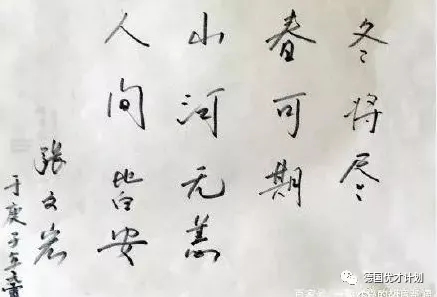 冬将尽
春可期
山河无恙
人间皆安
张文宏
于庚子
德国优才计划